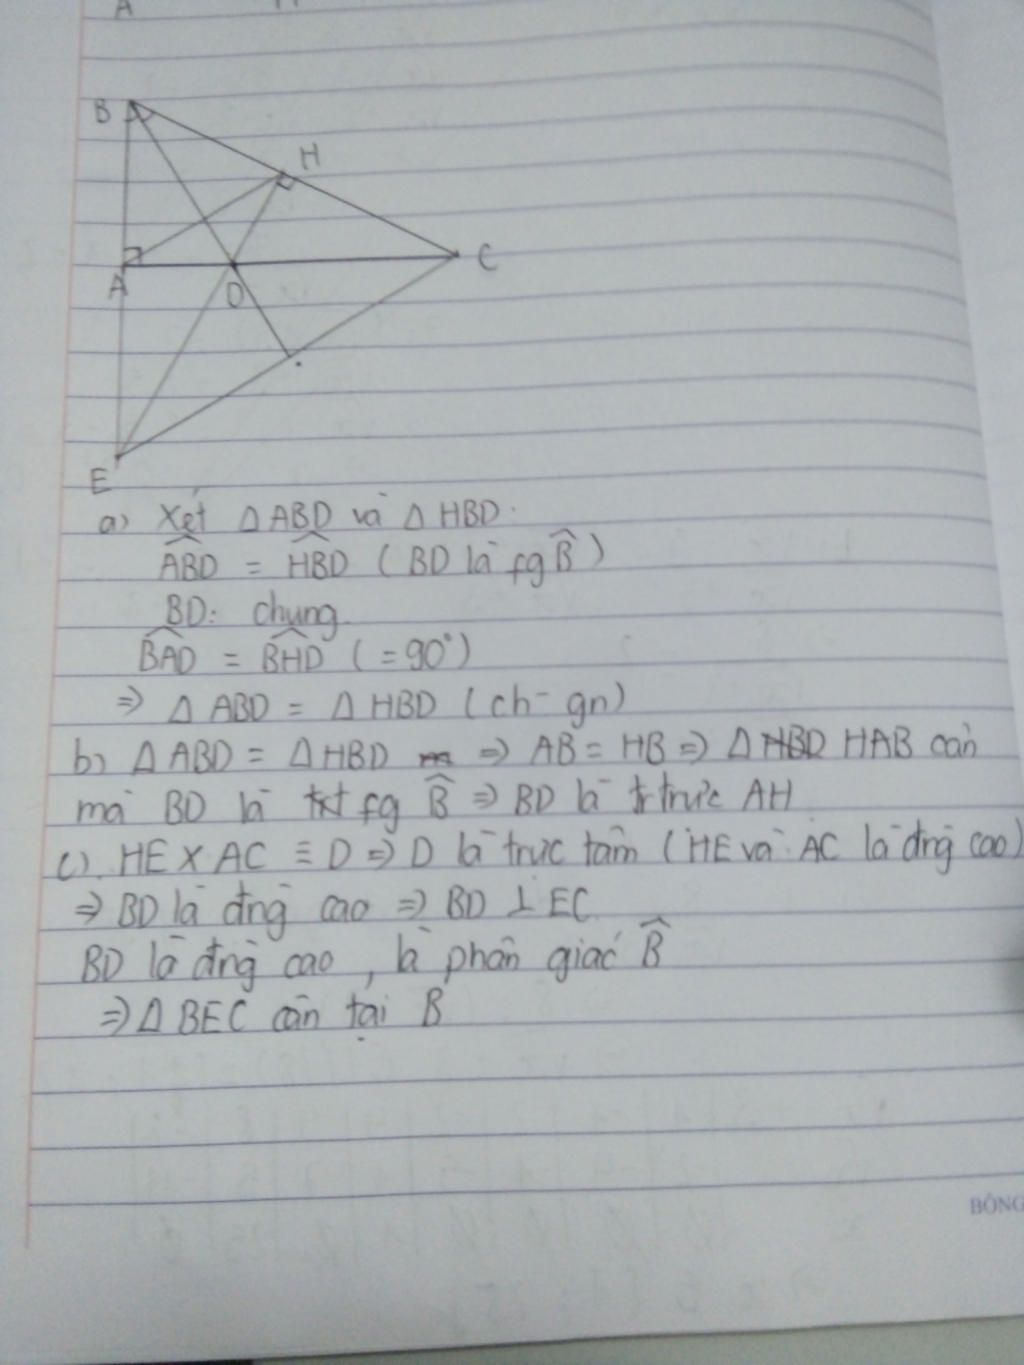 A
B
H
C
A
D
E
a) Xét Δ ABD và Δ HBD.
\widehat{ABD} = \widehat{HBD} ( BD là fg \widehat{B} )
BD: chung.
\widehat{BAD} = \widehat{BHD} ( = 90° )
⇒ Δ ABD = Δ HBD ( ch - gn)
b) Δ ABD = Δ HBD ⇒ AB = HB ⇒ Δ HBD HAB cân
mà BD là fg \widehat{B} ⇒ BD là tr trực AH
c). HE X AC ≡ D ⇒ D là trực tâm ( HE và AC là đng cao)
⇒ BD là đng cao ⇒ BD ⊥ EC
BD là đng cao , là phân giác \widehat{B}
⇒ Δ BEC cân tại B
BÔNG